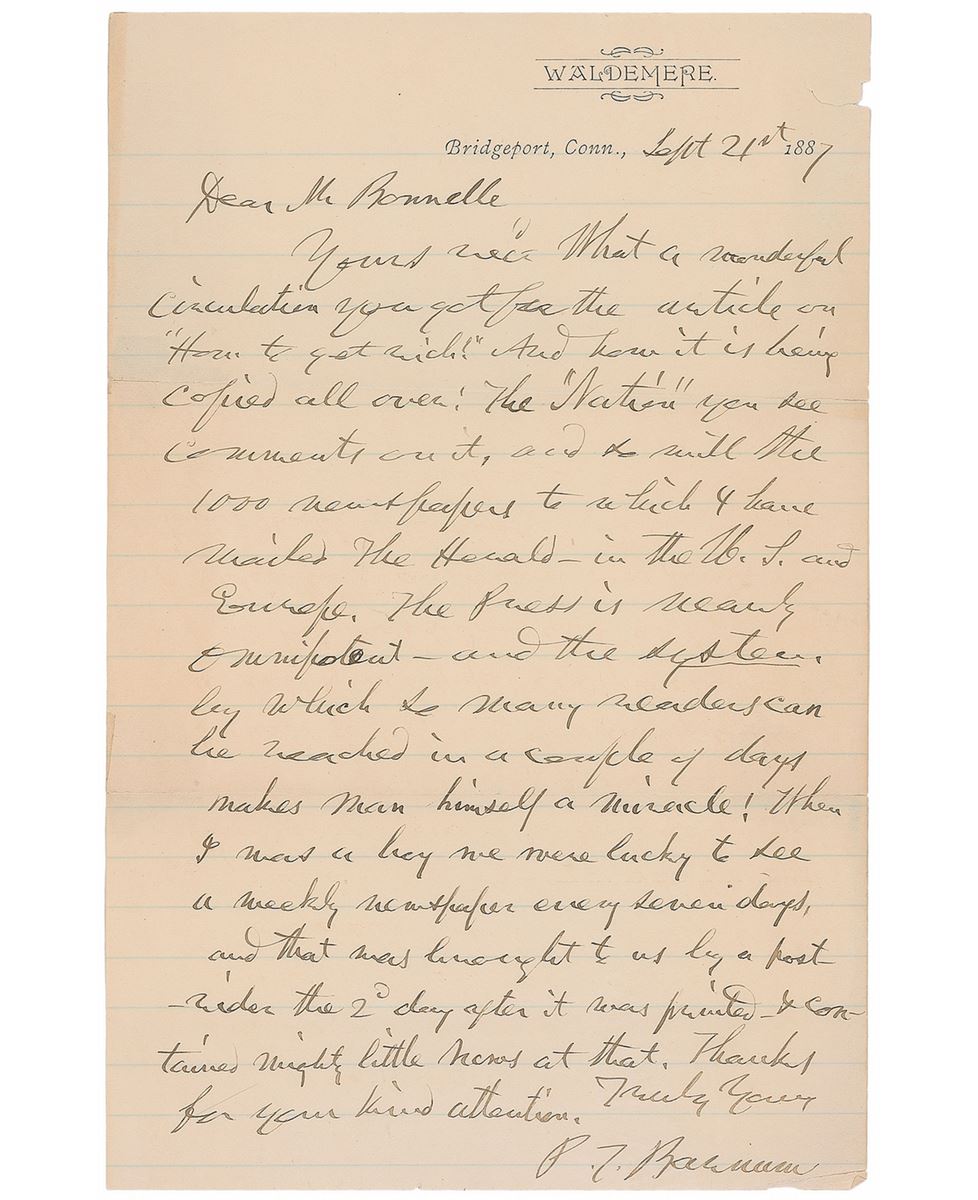 WALDEMERE.
Bridgeport, Conn., Sept 21st 1887
Dear Mr Bonnelle
Yours rec'd What a wonderful
circulation you got for the article on
"How to get rich!" And how it is being
copied all over! The "Nation" you see
comments on it, and so will the
1000 newspapers to which I have
mailed The Herald - in the U. S. and
Europe. The Press is nearly
omnipotent - and the system
by which so many readers can
be reached in a couple of days
makes man himself a miracle! When
I was a boy we were lucky to see
a weekly newspaper every seven days,
and that was brought to us by a post
-rider the 2d day after it was printed - & con-
tained mighty little news at that. Thanks
for your kind attention. Truly Yours
P. T. Barnum